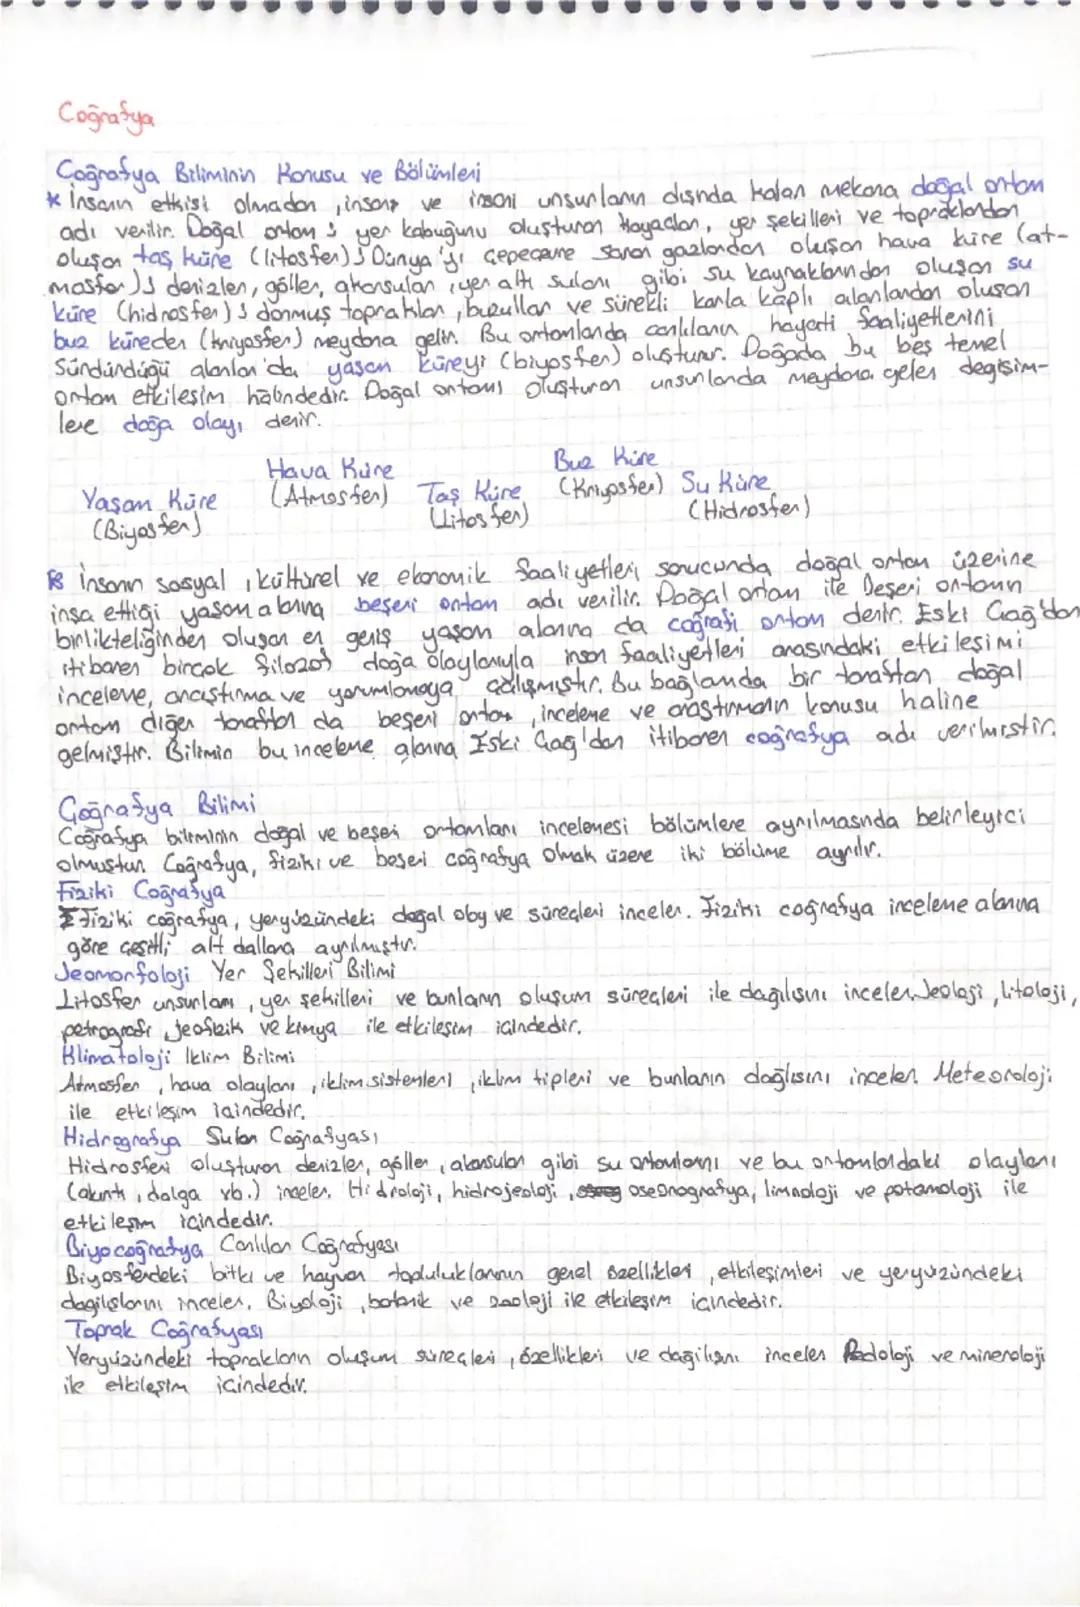 Coğrafya
Coğrafya Biliminin Konusu ve Bölümleri
* İnsanın etkisi olmadan, insan ve insani unsurların dışında kalan mekana doğal ortam
adı verilir. Doğal ortam; yer kabuğunu oluşturan kayaçlar, yer şekilleri ve topraklardan
oluşan taş küre (litosfer); Dünya'yı çepeçevre saran gazlardan oluşan hava küre (at-
mosfer); denizler, göller, akarsular, yer altı suları gibi su kaynaklarından oluşan su
küre (hidrosfer); donmuş topraklar, buzullar ve sürekli karla kaplı alanlardan oluşan
buz küreden (kriyosfer) meydana gelir. Bu ortamlarda canlıların hayati faaliyetlerini
sürdürdüğü alanlar da yaşam küreyi (biyosfer) oluşturur. Doğada bu beş temel
ortam etkileşim halindedir. Doğal ortamı oluşturan unsurlarda meydana gelen değişim-
lere doğa olayı denir.
Hava Küre Buz Küre
Yaşam Küre (Atmosfer) Taş Küre (Kriyosfer) Su Küre
(Biyosfer) (Litosfer) (Hidrosfer)
İnsanın sosyal, kültürel ve ekonomik faaliyetleri sonucunda doğal ortam üzerine
inşa ettiği yaşam alanına beşeri ortam adı verilir. Doğal ortam ile Beşeri ortamın
birlikteliğinden oluşan en geniş yaşam alanına da coğrafi ortam denir. Eski Çağ'dan
itibaren birçok filozof doğa olaylarıyla insan faaliyetleri arasındaki etkileşimi
inceleme, araştırma ve yorumlamaya çalışmıştır. Bu bağlamda bir taraftan doğal
ortam diğer taraftan da beşeri ortam, inceleme ve araştırmanın konusu haline
gelmiştir. Bilimin bu inceleme alanına Eski Çağ'dan itibaren coğrafya adı verilmiştir.
Coğrafya Bilimi
Coğrafya biliminin doğal ve beşeri ortamları incelemesi bölümlere ayrılmasında belirleyici
olmuştur. Coğrafya, fiziki ve beşeri coğrafya olmak üzere iki bölüme ayrılır.
Fiziki Coğrafya
Fiziki coğrafya, yeryüzündeki doğal olay ve süreçleri inceler. Fiziki coğrafya inceleme alanına
göre çeşitli alt dallara ayrılmıştır.
Jeomorfoloji Yer Şekilleri Bilimi
Litosfer unsurları, yer şekilleri ve bunların oluşum süreçleri ile dağılışını inceler. Jeoloji, litoloji,
petrografi, jeofizik ve kimya ile etkileşim içindedir.
Klimatoloji İklim Bilimi
Atmosfer, hava olayları, iklim sistemleri, iklim tipleri ve bunların dağlışını inceler. Meteoroloji
ile etkileşim içindedir.
Hidrografya Sular Coğrafyası
Hidrosferi oluşturan denizler, göller, akarsular gibi su ortamlarını ve bu ortamlardaki olayları
(akıntı, dalga vb.) inceler. Hidroloji, hidrojeoloji, oseonografya, limnoloji ve potamoloji ile
etkileşim içindedir.
Biyocoğrafya Canlılar Coğrafyası
Biyosferdeki bitki ve hayvan topluluklarının genel özellikleri, etkileşimleri ve yeryüzündeki
dağılışlarını inceler. Biyoloji, botanik ve zooloji ile etkileşim içindedir.
Toprak Coğrafyası
Yeryüzündeki toprakların oluşum süreçleri, özellikleri ve dağılışını inceler Pedoloji ve mineroloji
ile etkileşim içindedir.